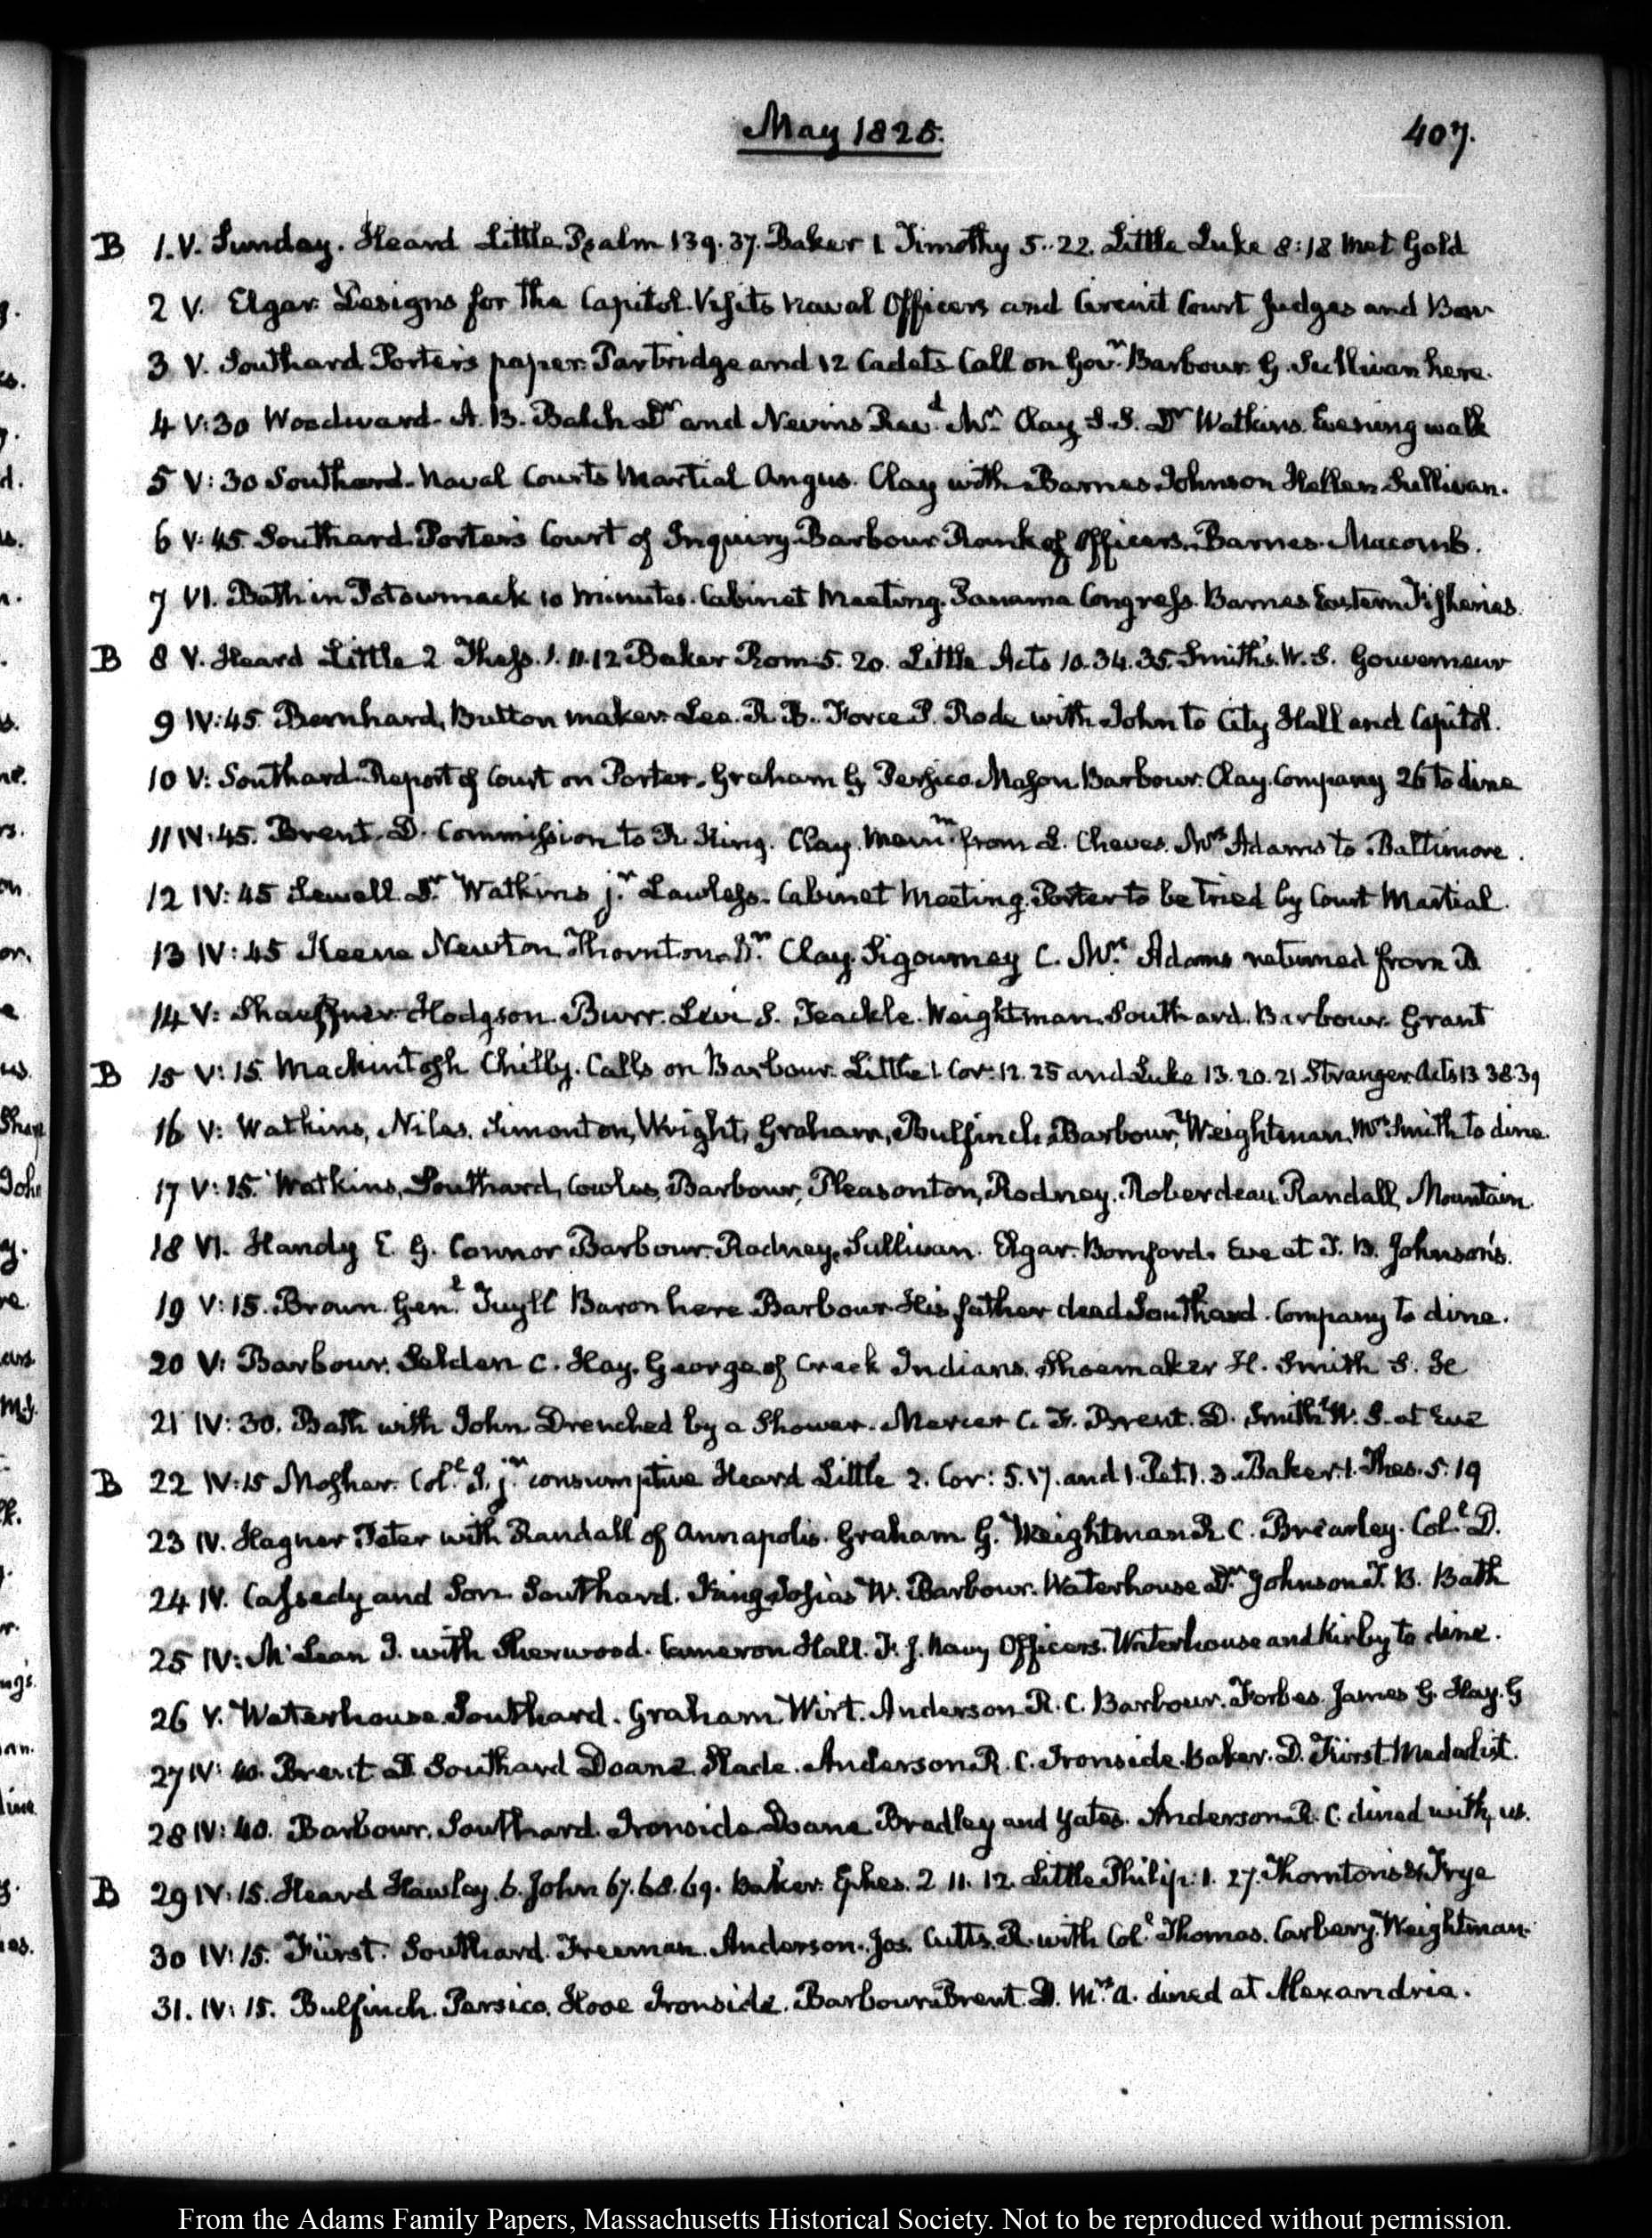 May 1825.
407.
B 1. V. Sunday. Heard Little Psalm 139. 37. Baker 1 Timothy 5. 22. Little Luke 8:18 Met Gold
2 V. Elgar. Designs for the Capitol. Visits Naval Officers and Circuit Court Judges and Bar
3 V. Southard Porter's paper. Partridge and 12 Cadets Call on Govr. Barbour. G. Sullivan here.
4 V:30 Woodward. A. B. Balch Dr and Nevins Revd. Mr. Clay. S.S. Dr Watkins. Evening walk
5 V:30 Southard. Naval Courts Martial Angus. Clay with Barnes Johnson Hellen Sullivan.
6 V:45. Southard. Porter's Court of Inquiry. Barbour Rank of Officers. Barnes. Macomb.
7 VI. Bath in Potowmack 10 minutes. Cabinet Meeting. Panama Congress. Barnes Eastern Fisheries.
B 8 V. Heard Little 2 Thess. 1. 11. 12 Baker Rom. 5. 20. Little Acts 10. 34. 35. Smith's. W. S. Gouverneur
9 IV:45. Bernhard, Button maker. Lee. R. B. Force P. Rode with John to City Hall and Capitol.
10 V: Southard. Report of Court on Porter. Graham G Persico Mason. Barbour. Clay. Company 26 to dine
11 IV:45. Brent. D. Commission to R. King. Clay. Memm. from L. Cheves. Mrs Adams to Baltimore.
12 IV:45 Sewall. Dr. Watkins jr. Lawless. Cabinet Meeting. Porter to be tried by Court Martial.
13 IV:45 Keene Newton. Thornton Dr. Clay. Sigourney C. Mrs. Adams returned from B
14 V: Shaeffner. Hodgson. Burr. Levi S. Teackle. Weightman. Southard. Barbour. Grant
B 15 V:15. Mackintosh Chilly. Calls on Barbour. Little 1 Cor: 12. 25 and Luke 13. 20. 21 Stranger. Acts 13 38.39
16 V: Watkins, Niles. Simonton, Wright, Graham, Bulfinch, Barbour, Weightman. Mrs Smith to dine.
17 V:15. Watkins, Southard, Cowles, Barbour, Pleasonton, Rodney. Roberdeau. Randall, Mountain.
18 VI. Handy E. G. Connor Barbour. Rodney, Sullivan. Elgar. Bomford. Eve at J. B. Johnson's.
19 V:15. Brown. Genl. Tuyll Baron here Barbour His father dead Southard. Company to dine.
20 V: Barbour. Selden C. Hay. George of Creek Indians. Shoemaker H. Smith S. H
21 IV:30. Bath with John Drenched by a Shower. Mercer C. F. Brent. D. Smith W. S. at Eve
B 22 IV:15 Mosher. Coll. J. jr. consumptive Heard Little 2. Cor: 5. 17. and 1. Pet. 1. 3. Baker. 1. Thes. 5. 19
23 IV. Hagner Peter with Randall of Annapolis. Graham G. Weightman R. C. Brearley. Coll. D.
24 IV. Cassedy and Son. Southard. King Josias W. Barbour. Waterhouse Dr. Johnson J. B. Bath
25 IV: McLean J. with Sherwood. Cameron Hall. F. J. Navy Officers. Waterhouse and Kirby to dine.
26 V. Waterhouse. Southard. Graham. Wirt. Anderson R. C. Barbour. Forbes. James G. Hay. G
27 IV:40. Brent D. Southard Doane Slade. Anderson R. C. Ironside. Baker. D. Fürst Medalist.
28 IV:40. Barbour. Southard. Ironside. Doane Bradley and Yates. Anderson R. C. dined with us.
B 29 IV:15. Heard Hawley. 6. John 67. 68. 69. Baker. Ephes. 2 11. 12. Little Philip: 1. 27. Thornton's & Frye
30 IV:15. Fürst. Southard. Freeman. Anderson. Jos. Cutts. R. with Coll. Thomas. Carbery. Weightman.
31. IV:15. Bulfinch. Persico. Hooe Ironside. Barbour Brent. D. Mrs. A. dined at Alexandria.
From the Adams Family Papers, Massachusetts Historical Society. Not to be reproduced without permission.